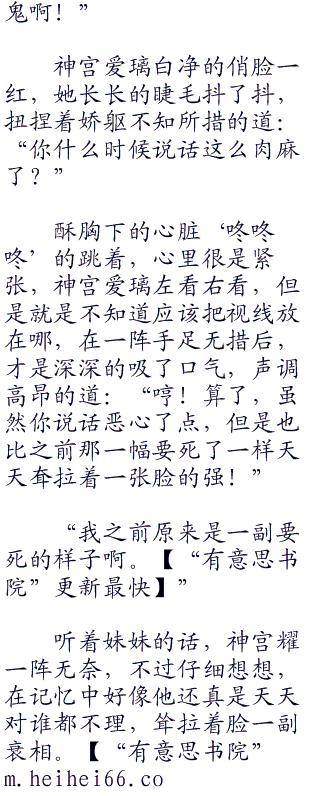 鬼啊！”
神宫爱璃白净的俏脸一
红，她长长的睫毛抖了抖，
扭捏着娇躯不知所措的道：
“你什么时候说话这么肉麻
了？”
酥胸下的心脏‘咚咚
咚’的跳着，心里很是紧
张，神宫爱璃左看右看，但
是就是不知道应该把视线放
在哪，在一阵手足无措后，
才是深深的吸了口气，声调
高昂的道：“哼！算了，虽
然你说话恶心了点，但是也
比之前那一幅要死了一样天
天耷拉着一张脸的强！”
“我之前原来是一副要
死的样子啊。【“有意思书
院”更新最快】”
听着妹妹的话，神宫耀
一阵无奈，不过仔细想想，
在记忆中好像他还真是天天
对谁都不理，耸拉着脸一副
衰相。【“有意思书院”
m.heihei66.co